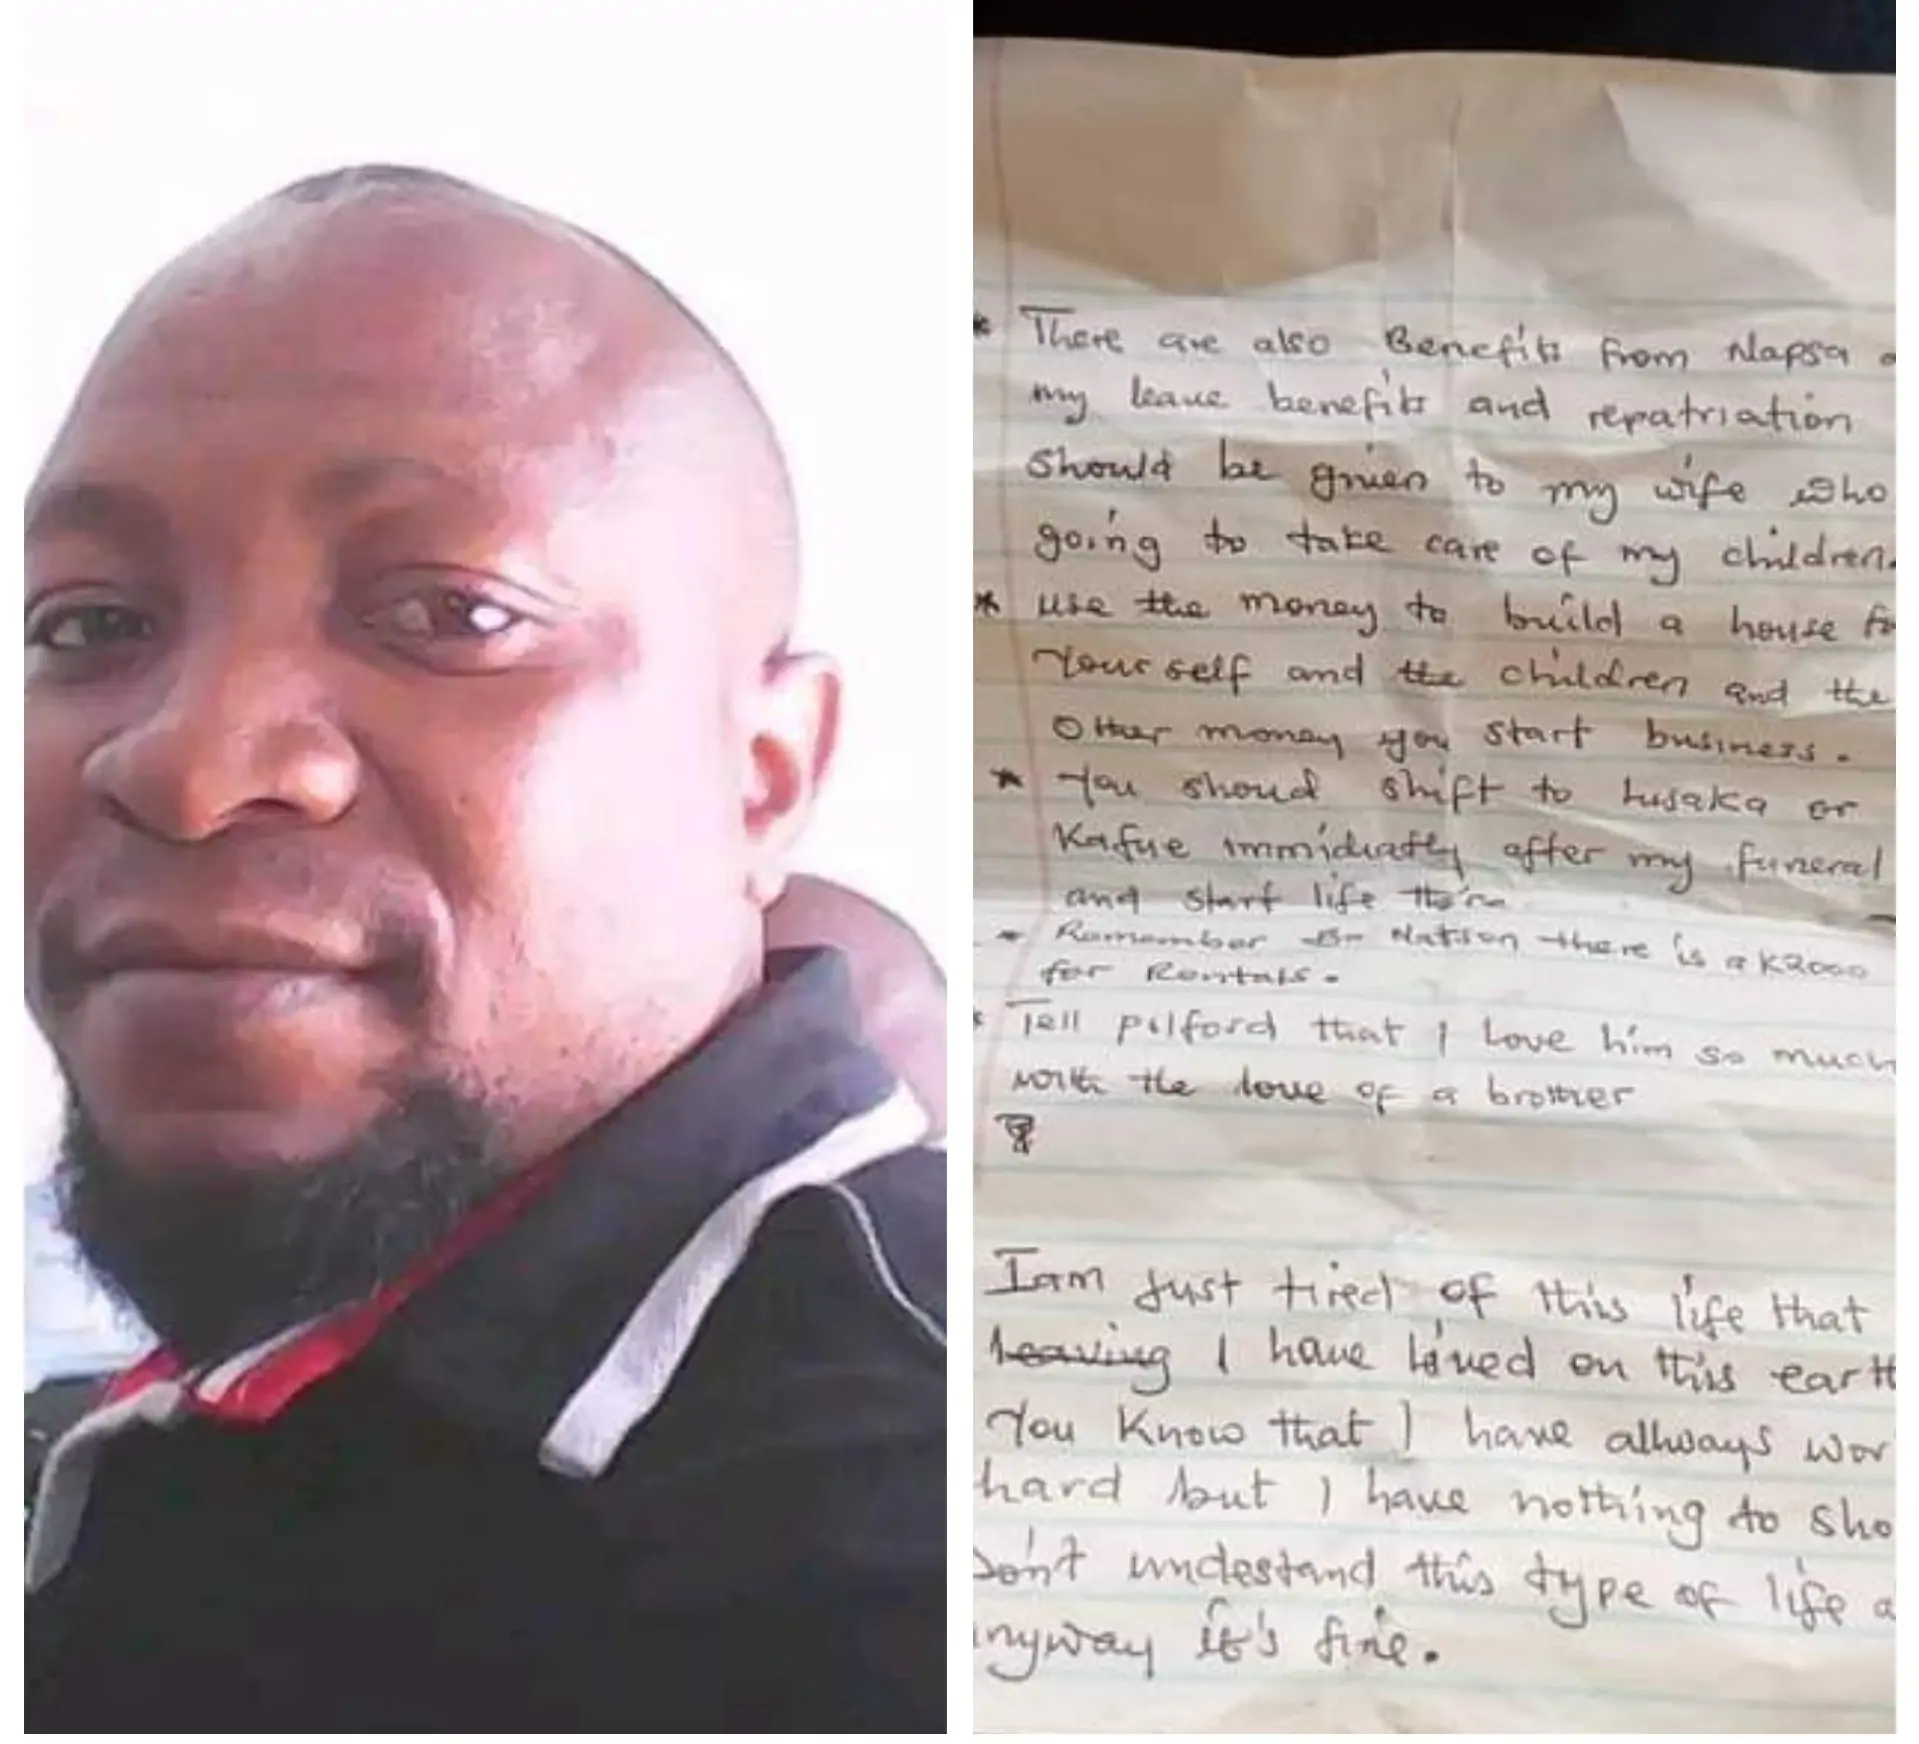 * There are also Benefits from Napsa
my leave benefits and repatriation
Should be given to my wife who
going to take care of my children.
* use the money to build a house fo
Your self and the children and the
Other money you start business.
* You shoud shift to Lusaka or
Kafue immidiatly after my funeral
and start life there
* Remember Ba Natison there is a K2000
for Rentals.
* Tell pilford that I Love him so much
with the love of a brother
I am just tired of this life that
leaving I have lived on this earth
You Know that I have allways wor
hard but I have nothing to sho
Don't undestand this type of life a
nyway it's fine.